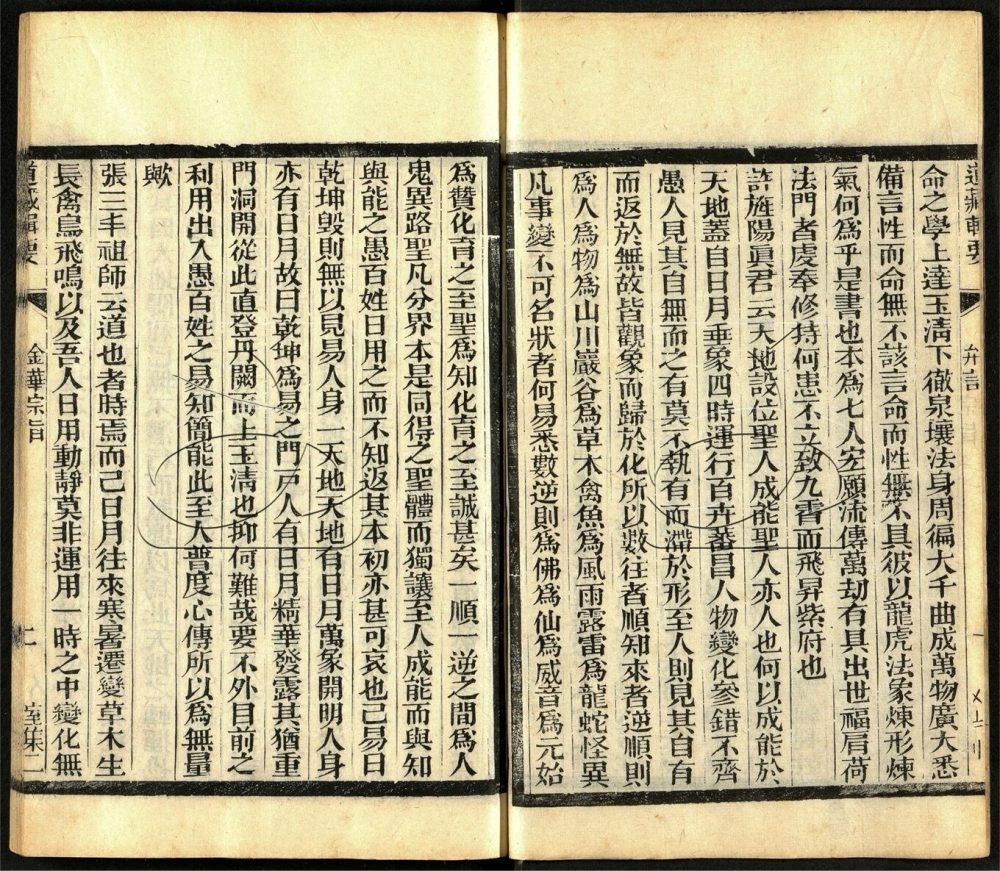 道藏輯要 弁言
命之學上達玉淸下徹泉壤法身周徧大千曲成萬物廣大悉
備言性而命無不該言命而性無不具彼以龍虎法象煉形煉
氣何爲乎是書也本爲七人宏願流傳萬劫有具出世福肩荷
法門者虔奉修持何患不立致九霄而飛昇紫府也
許旌陽眞君云天地設位聖人成能聖人亦人也何以成能於
天地蓋自日月垂象四時運行百卉蕃昌人物變化參錯不齊
愚人見其自無而之有莫不執有而滯於形至人則見其自有
而返於無故皆觀象而歸於化所以數往者順知來者逆順則
爲人爲物爲山川巖谷爲草木禽魚爲風雨露雷爲龍蛇怪異
凡事變不可名狀者何易悉數逆則爲佛爲仙爲威音爲元始
爲贊化育之至聖爲知化育之至誠甚矣一順一逆之間爲人
鬼異路聖凡分界本是同得之聖體而獨讓至人成能而與知
與能之愚百姓日用之而不知返其本初亦甚可哀也已易曰
乾坤毁則無以見易人身一天地天地有日月萬象開明人身
亦有日月故曰乾坤爲易之門戸人有日月精華發露其猶重
門洞開從此直登丹闕而上玉淸也抑何難哉要不外目前之
利用出入愚百姓之易知簡能此至人普度心傳所以爲無量
歟
張三丰祖師云道也者時焉而已日月往來寒暑遷變草木生
長禽鳥飛鳴以及吾人日用動靜莫非運用一時之中變化無
道藏輯要 金華宗旨 二 室集二